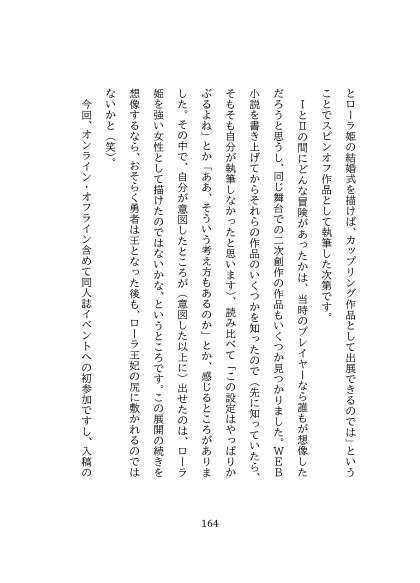 とローラ姫の結婚式を描けば、カップリング作品として出展できるのでは」という
ことでスピンオフ作品として執筆した次第です。
　ⅠとⅡの間にどんな冒険があったかは、当時のプレイヤーなら誰もが想像した
だろうと思うし、同じ舞台での二次創作の作品もいくつか見つかりました。ＷＥＢ
小説を書き上げてからそれらの作品のいくつかを知ったので（先に知っていたら、
そもそも自分が執筆しなかったと思います）、読み比べて「この設定はやっぱりか
ぶるよね」とか「ああ、そういう考え方もあるのか」とか、感じるところがありま
した。その中で、自分が意図したところが（意図した以上に）出せたのは、ローラ
姫を強い女性として描けたのではないかな、というところです。この展開の続きを
想像するなら、おそらく勇者は王となった後も、ローラ王妃の尻に敷かれるのでは
ないかと（笑）。
　今回、オンライン・オフライン含めて同人誌イベントへの初参加ですし、入稿の
164